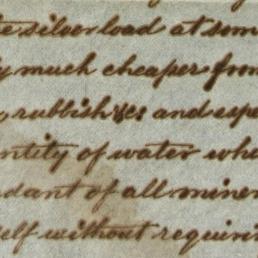 silver load at som
much cheaper from
rubbish &c and expe
ntity of water whe
dant of all miner
elf without requirin